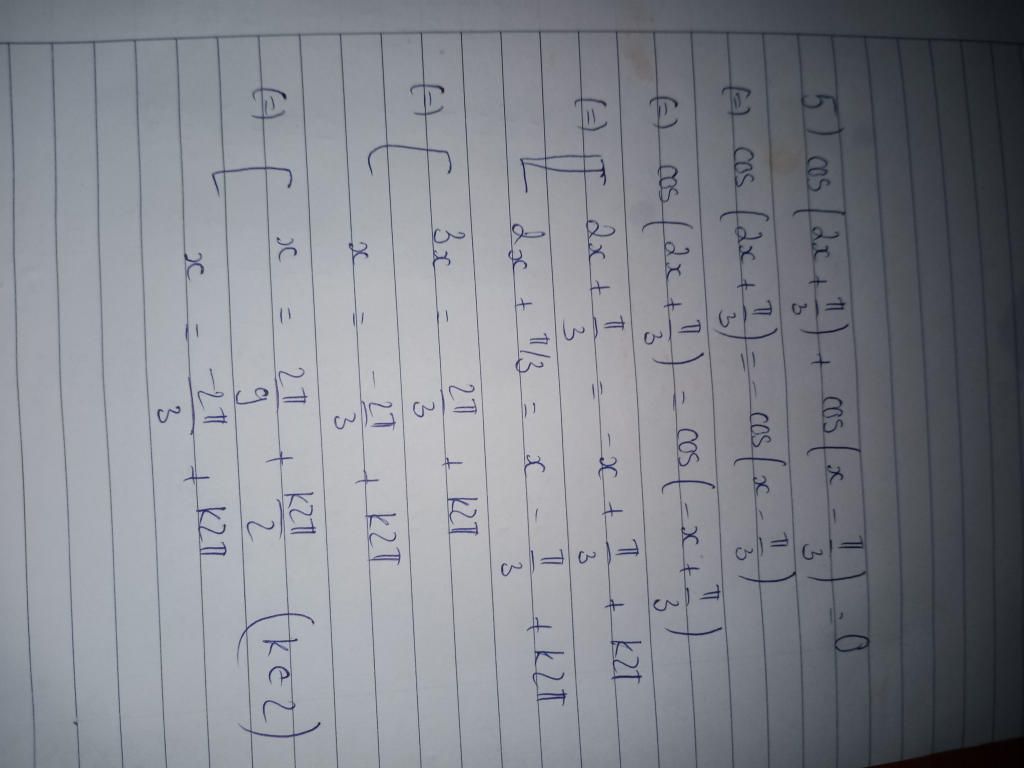 5) cos(2x + π/3) + cos(x - π/3) = 0
(=) cos(2x + π/3) = - cos(x - π/3)
(=) cos(2x + π/3) = cos(-x + π/3)
(=) [ 2x + π/3 = -x + π/3 + k2π
2x + π/3 = x - π/3 + k2π
(=) [ 3x = 2π/3 + k2π
x = -2π/3 + k2π
(=) [ x = 2π/9 + k2π/2 (k∈Z)
x = -2π/3 + k2π